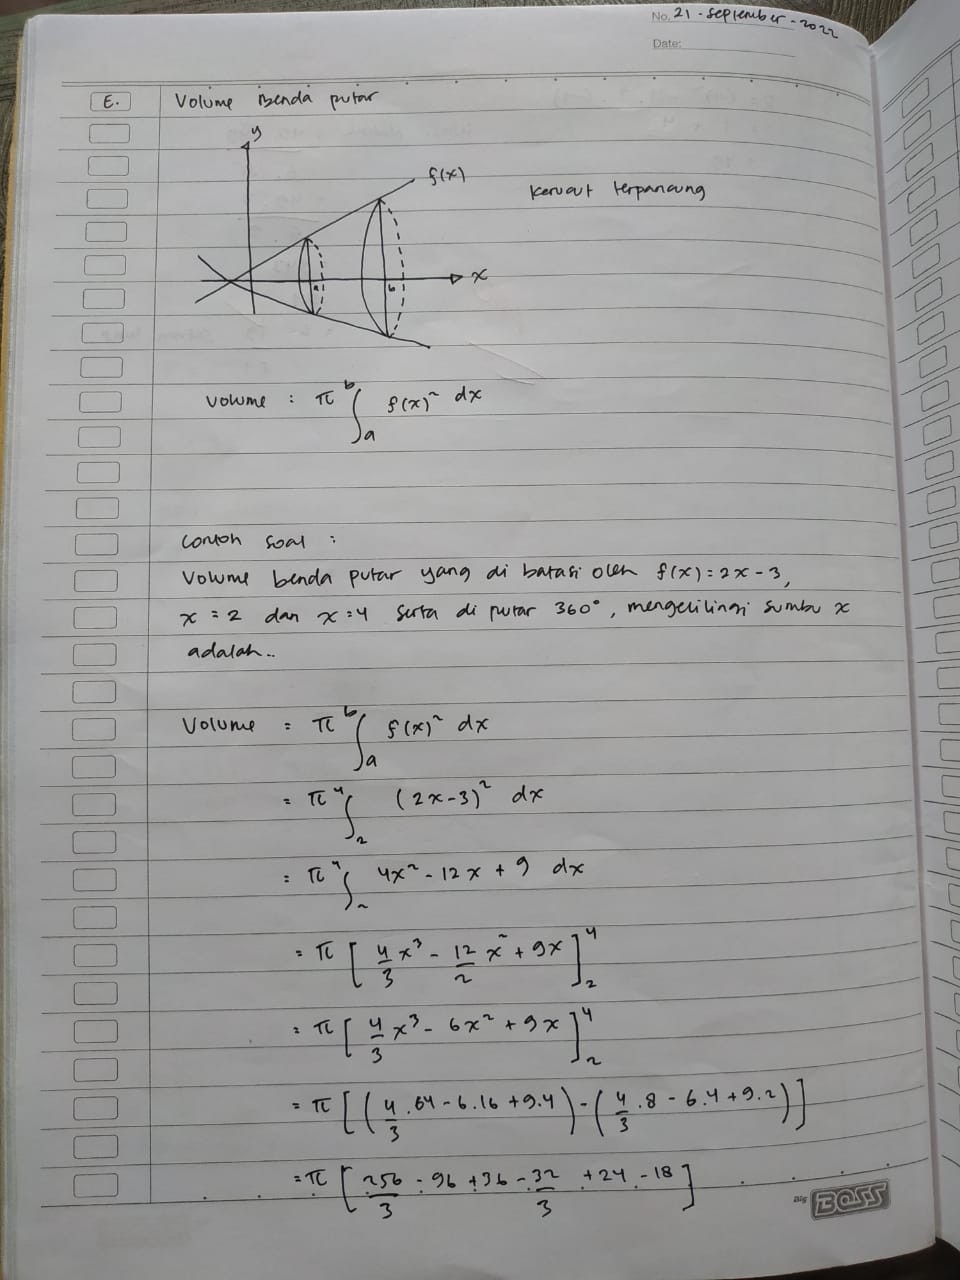 No. 21 - September - 2022
Date:
E. Volume Benda putar
y
f(x)
Kerucut terpancung
a b x
Volume : π ∫ₐᵇ f(x)² dx
Contoh soal :
Volume benda putar yang di batasi oleh f(x) = 2x - 3,
x = 2 dan x = 4 serta di putar 360°, mengelilingi sumbu x
adalah..
Volume = π ∫ₐᵇ f(x)² dx
= π ∫₂⁴ (2x-3)² dx
= π ∫₂⁴ 4x² - 12x + 9 dx
= π [4/3 x³ - 12/2 x² + 9x]₂⁴
= π [4/3 x³ - 6x² + 9x]₂⁴
= π [(4/3 . 64 - 6.16 + 9.4) - (4/3 . 8 - 6.4 + 9.2)]
= π [256/3 - 96 + 36 - 32/3 + 24 - 18]
Big BOSS